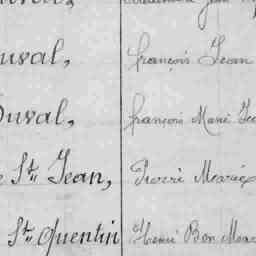 uval, François Jean
Duval, François Marie
St Jean, Pierre Marie
St Quentin Henri Bon